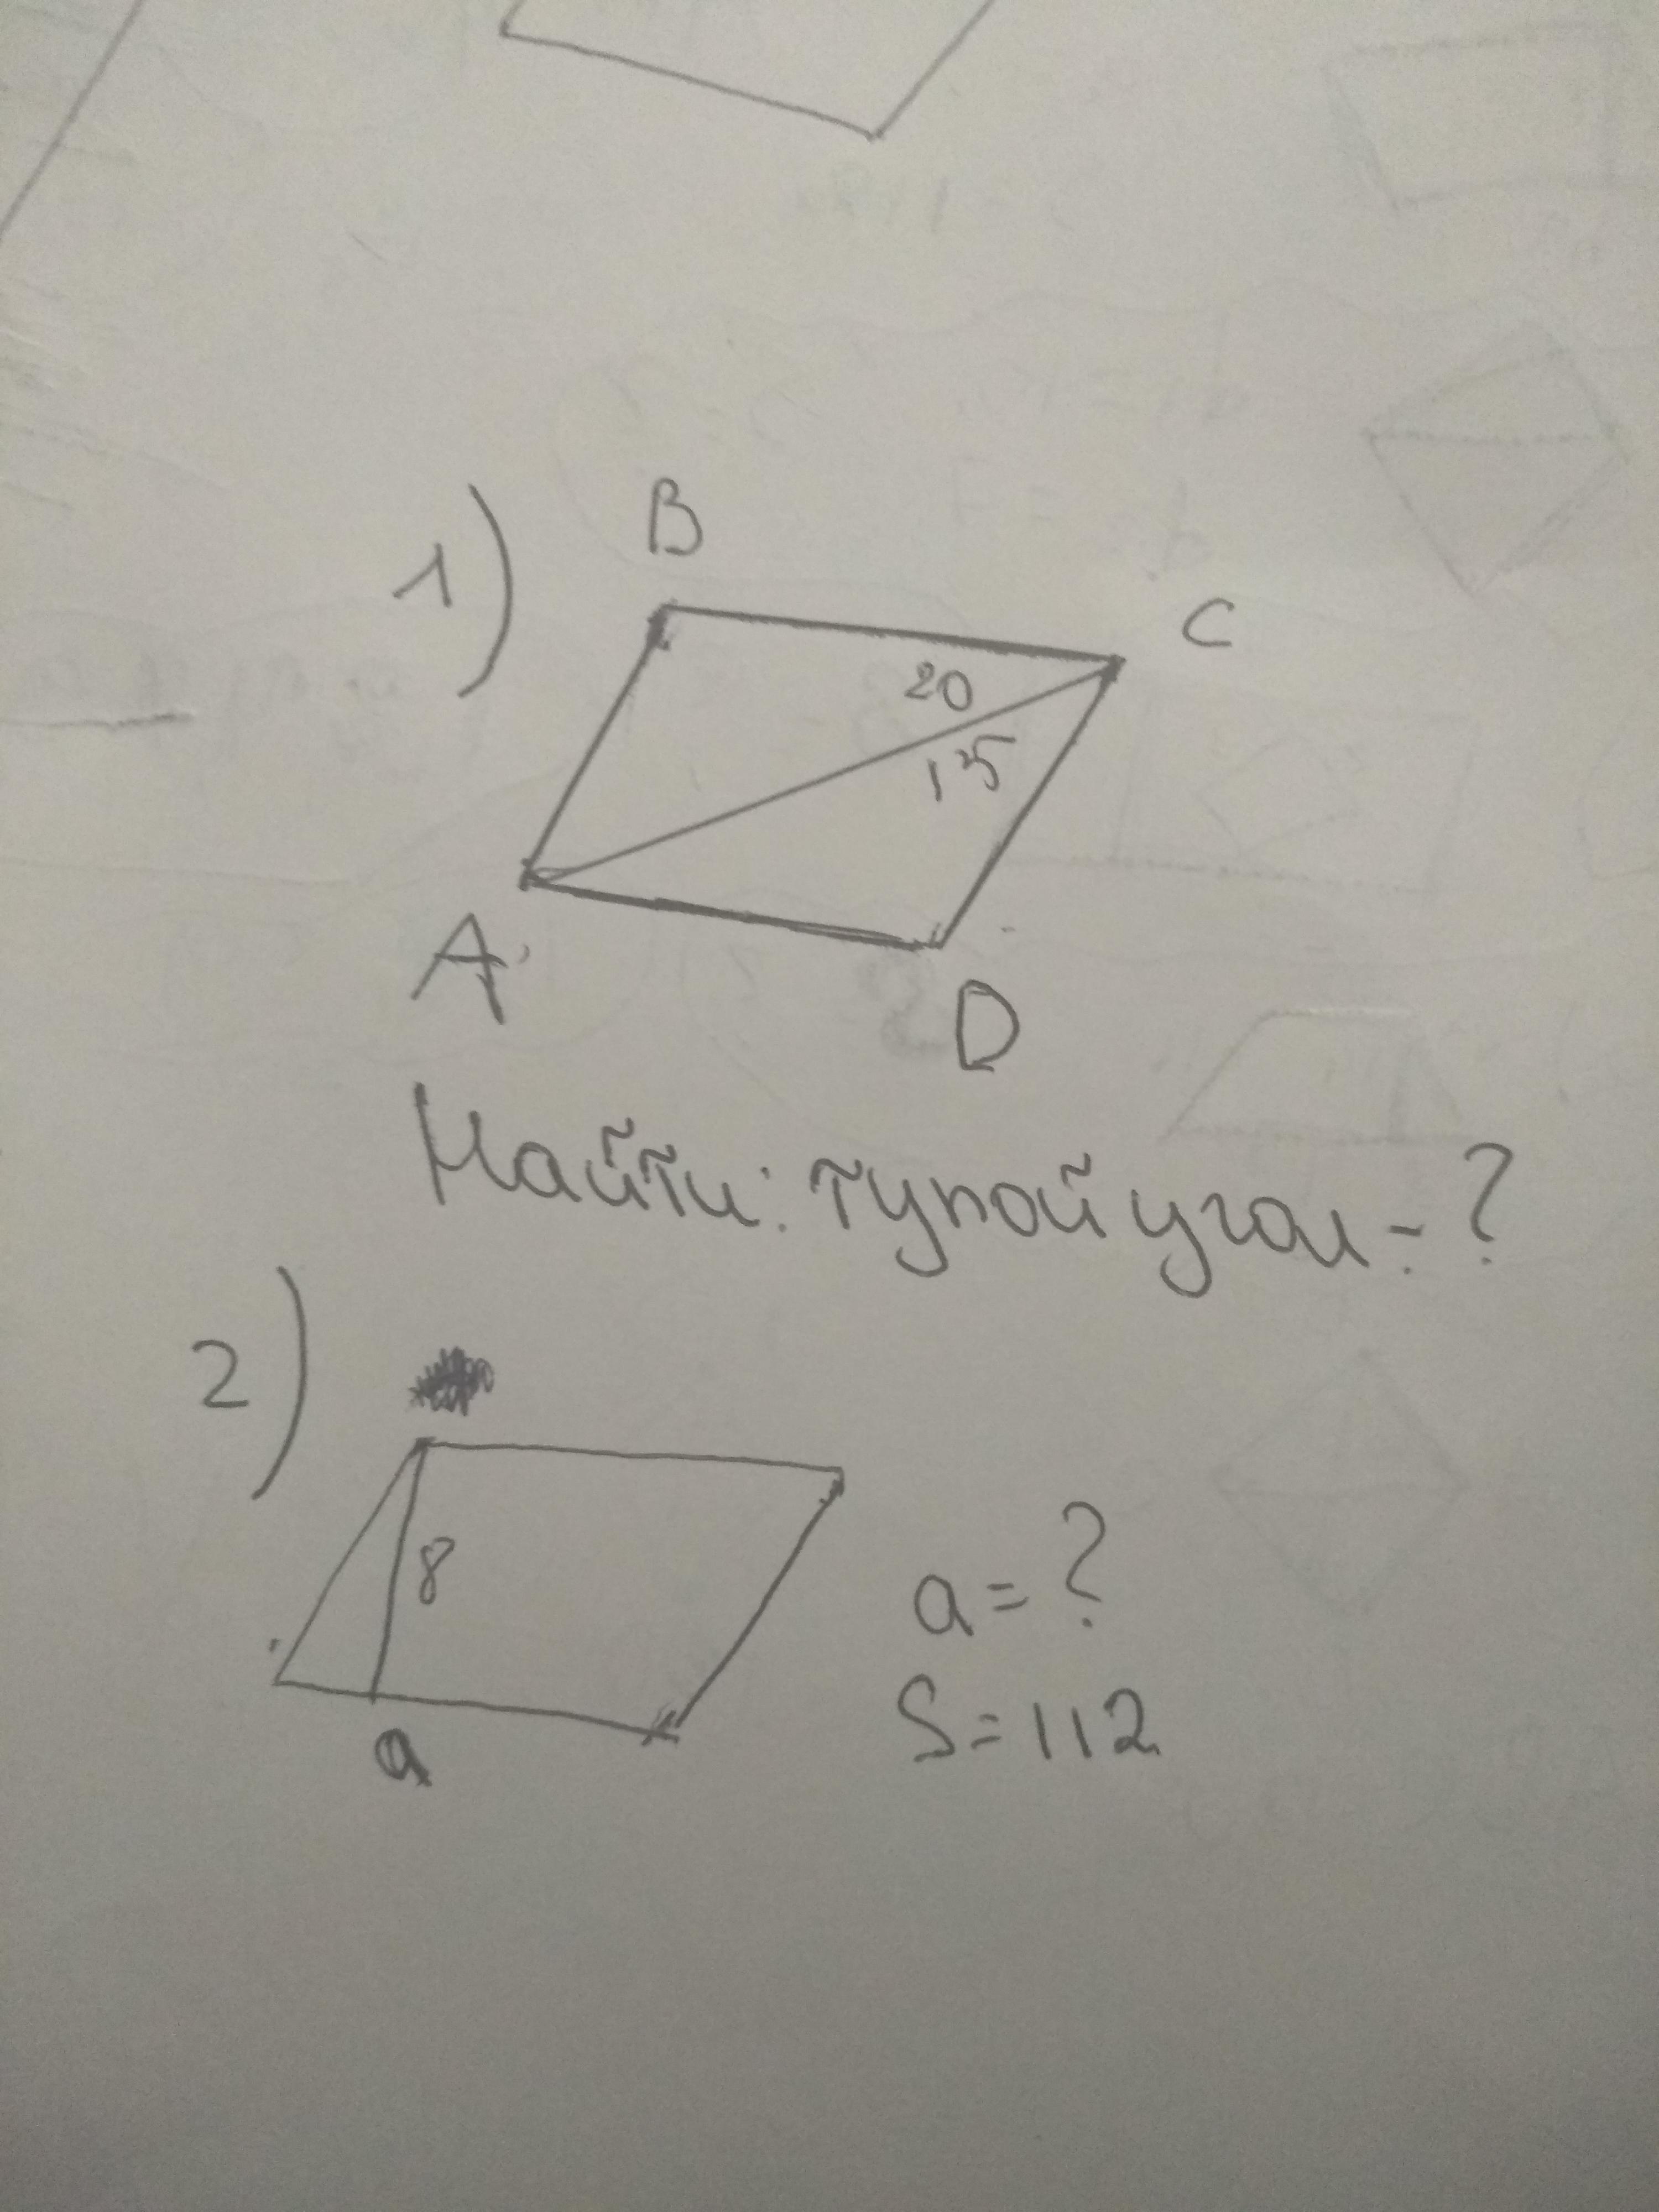 1)
B
C
20
135
A
D
Найти: тупой угол - ?
2)
8
a = ?
S = 112
a